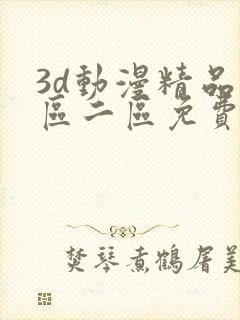 3d動漫精品
區二區免費
焚琴煮鶴屠美